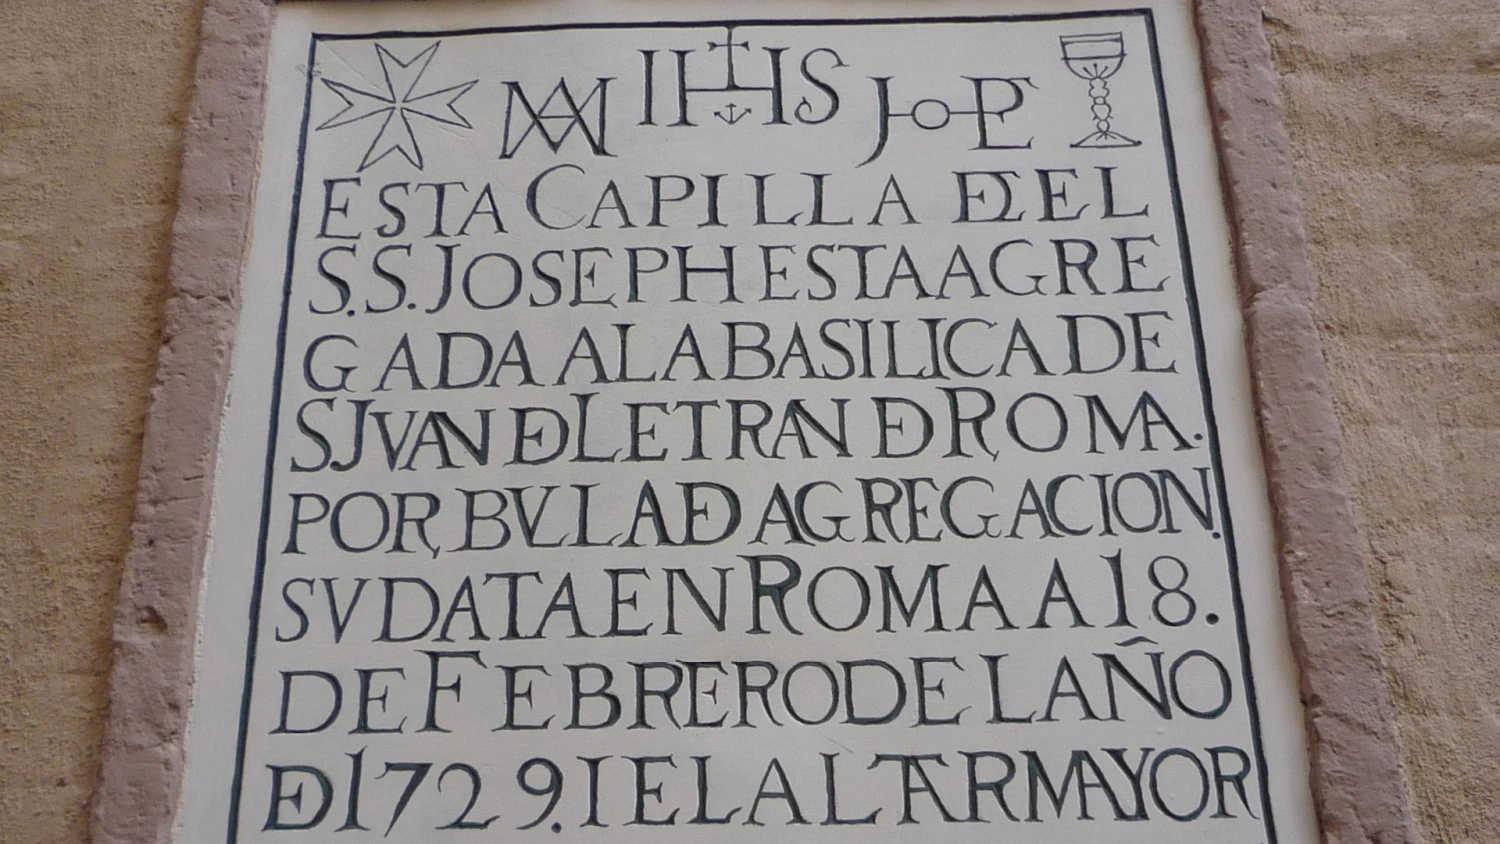 MA IHS JoPE
ESTA CAPILLA DEEL
S.S. JOSEPH ESTA AGRE
GADA A LA BASILICA DE
S JVAN DE LETRAN DE ROMA.
POR BVLA DE AGREGACION.
SV DATA EN ROMA A 18.
DE FEBRERO DEL AÑO
DE 1729. I EL ALTAR MAYOR